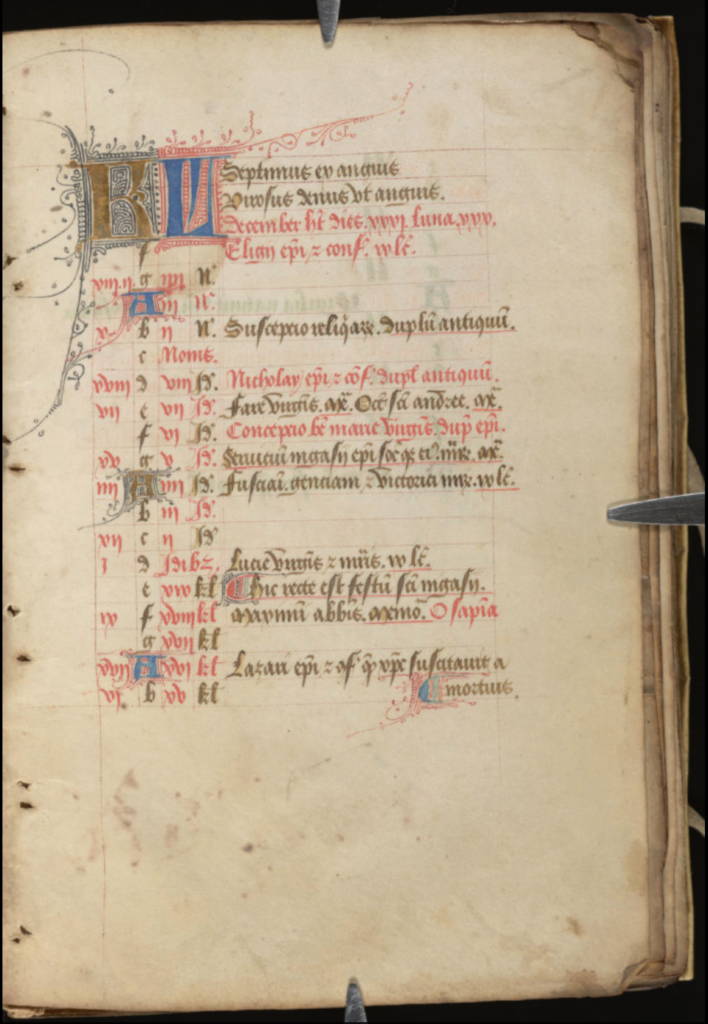 KL Septimus ex anguis
Virosus denus vt anguis.
December ht dies. xxxi luna. xxx.
f Eligii epi z conf. ix lc.
xiii g iiii N.
A iii N.
x b ii N. Suscepcio reliqarx. duplu antiquu.
c Nonis.
xviii d viii Id. Nicholay epi z cof. dupl antiquu.
vii e vii Id. Fare virgis. Oct sci andree.
f vi Id. Concepcio be marie virgis. dup epi.
xv g v Id. epi
iiii A iiii Id. Fusciani. genciani z victorici mr. ix lc.
b iii Id.
xii c ii Id
i d Idibz. Lucie virgis z mris. ix lc.
e xix kl hic recte est festu sci
ix f xviii kl Maximini abbis. O sapia
g xvii kl
xvii A xvi kl Lazari epi z cf qp xpc suscitauit a
vi b xv kl mortuis.